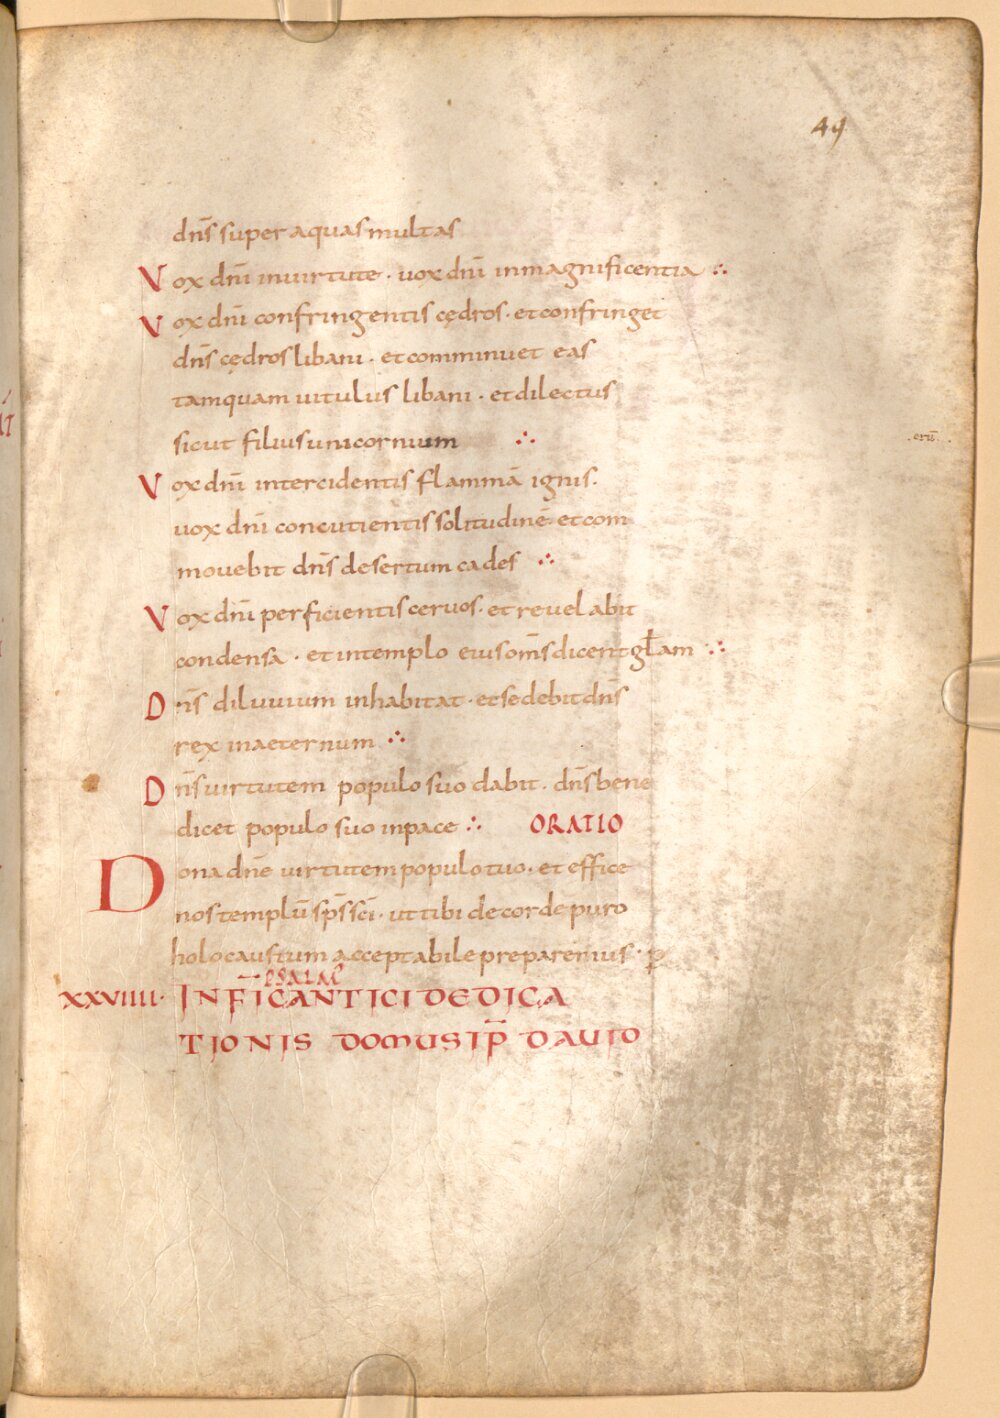 49
dn̄s super aquas multas
Vox dn̄i inuirtute · uox dn̄i inmagnificentia ∴
Vox dn̄i confringentis cędros · et confringet
dn̄s cędros libani · et comminuet eas
tamquam uitulus libani · et dilectus
sicut filius unicornium ∴
eru̅
Vox dn̄i intercidentis flammā ignis.
uox dn̄i concutientis solitudinē et com
mouebit dn̄s desertum cades ∴
Vox dn̄i perficientis ceruos · et reuelabit
condensa · et intemplo eius om̄s dicent gl̄am ∴
Dn̄s diluuium inhabitat · et sedebit dn̄s
rex inaeternum ∴
Dn̄s uirtutem populo suo dabit · dn̄s bene
dicet populo suo inpace ∴ ORATIO
Dona dn̄e uirtutem populo tuo · et effice
nos templū sp̄s sc̄i · ut tibi de corde puro
holocaustum acceptabile preparemus · ꝑ
PSALM̄
XXVIIII · IN FI̅ CANTICI DEDICA
TIONIS DOMUS IP̄ DAUID